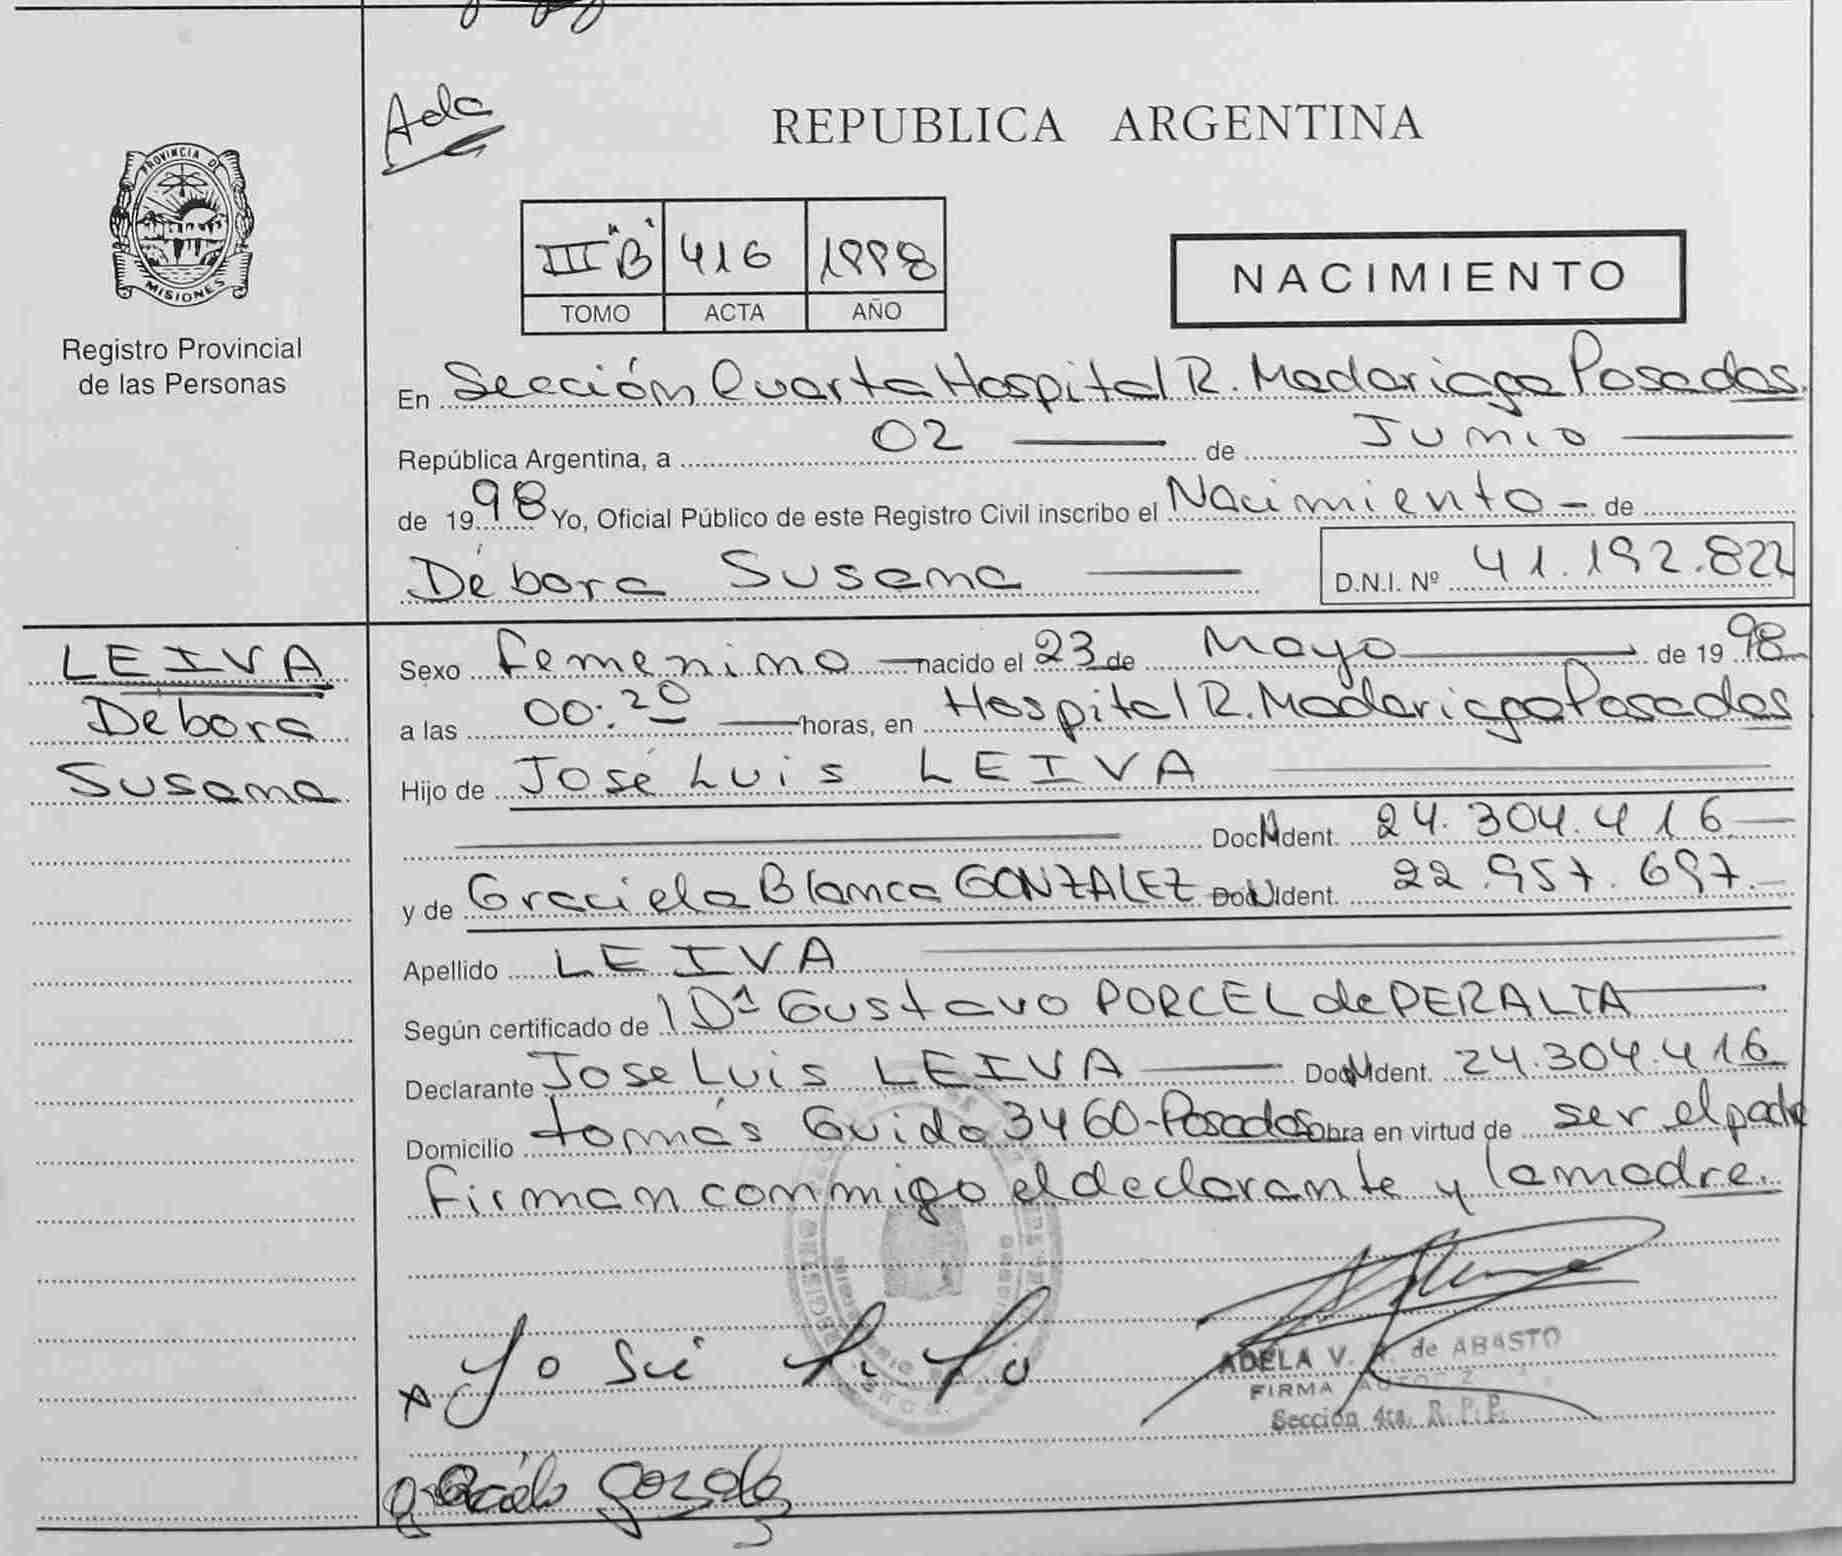 Ada
REPUBLICA ARGENTINA
PROVINCIA DE
MISIONES
Registro Provincial
de las Personas
III "B" 416 1998
TOMO ACTA AÑO
NACIMIENTO
En Sección Cuarta Hospital R. Madariaga Posadas.
República Argentina, a 02 de Junio
de 1998 Yo, Oficial Público de este Registro Civil inscribo el Nacimiento - de
Débora Susana
D.N.I. Nº 41.192.822
LEIVA
Débora
Susana
Sexo femenino nacido el 23 de Mayo de 1998
a las 00:20 horas, en Hospital R. Madariaga Posadas
Hijo de José Luis LEIVA
Doc. Ident. 24.304.416
y de Graciela Blanca GONZALEZ Doc. Ident. 22.957.697.-
Apellido LEIVA
Según certificado de Gustavo PORCEL de PERALTA
Declarante Jose Luis LEIVA Doc. Ident. 24.304.416
Domicilio tomás Guido 3460-Posadas Obra en virtud de ser el padre
firman conmigo el declarante y la madre.
José
ADELA V. de ABASTO
FIRMA
Sección 4ta. R.P.P.